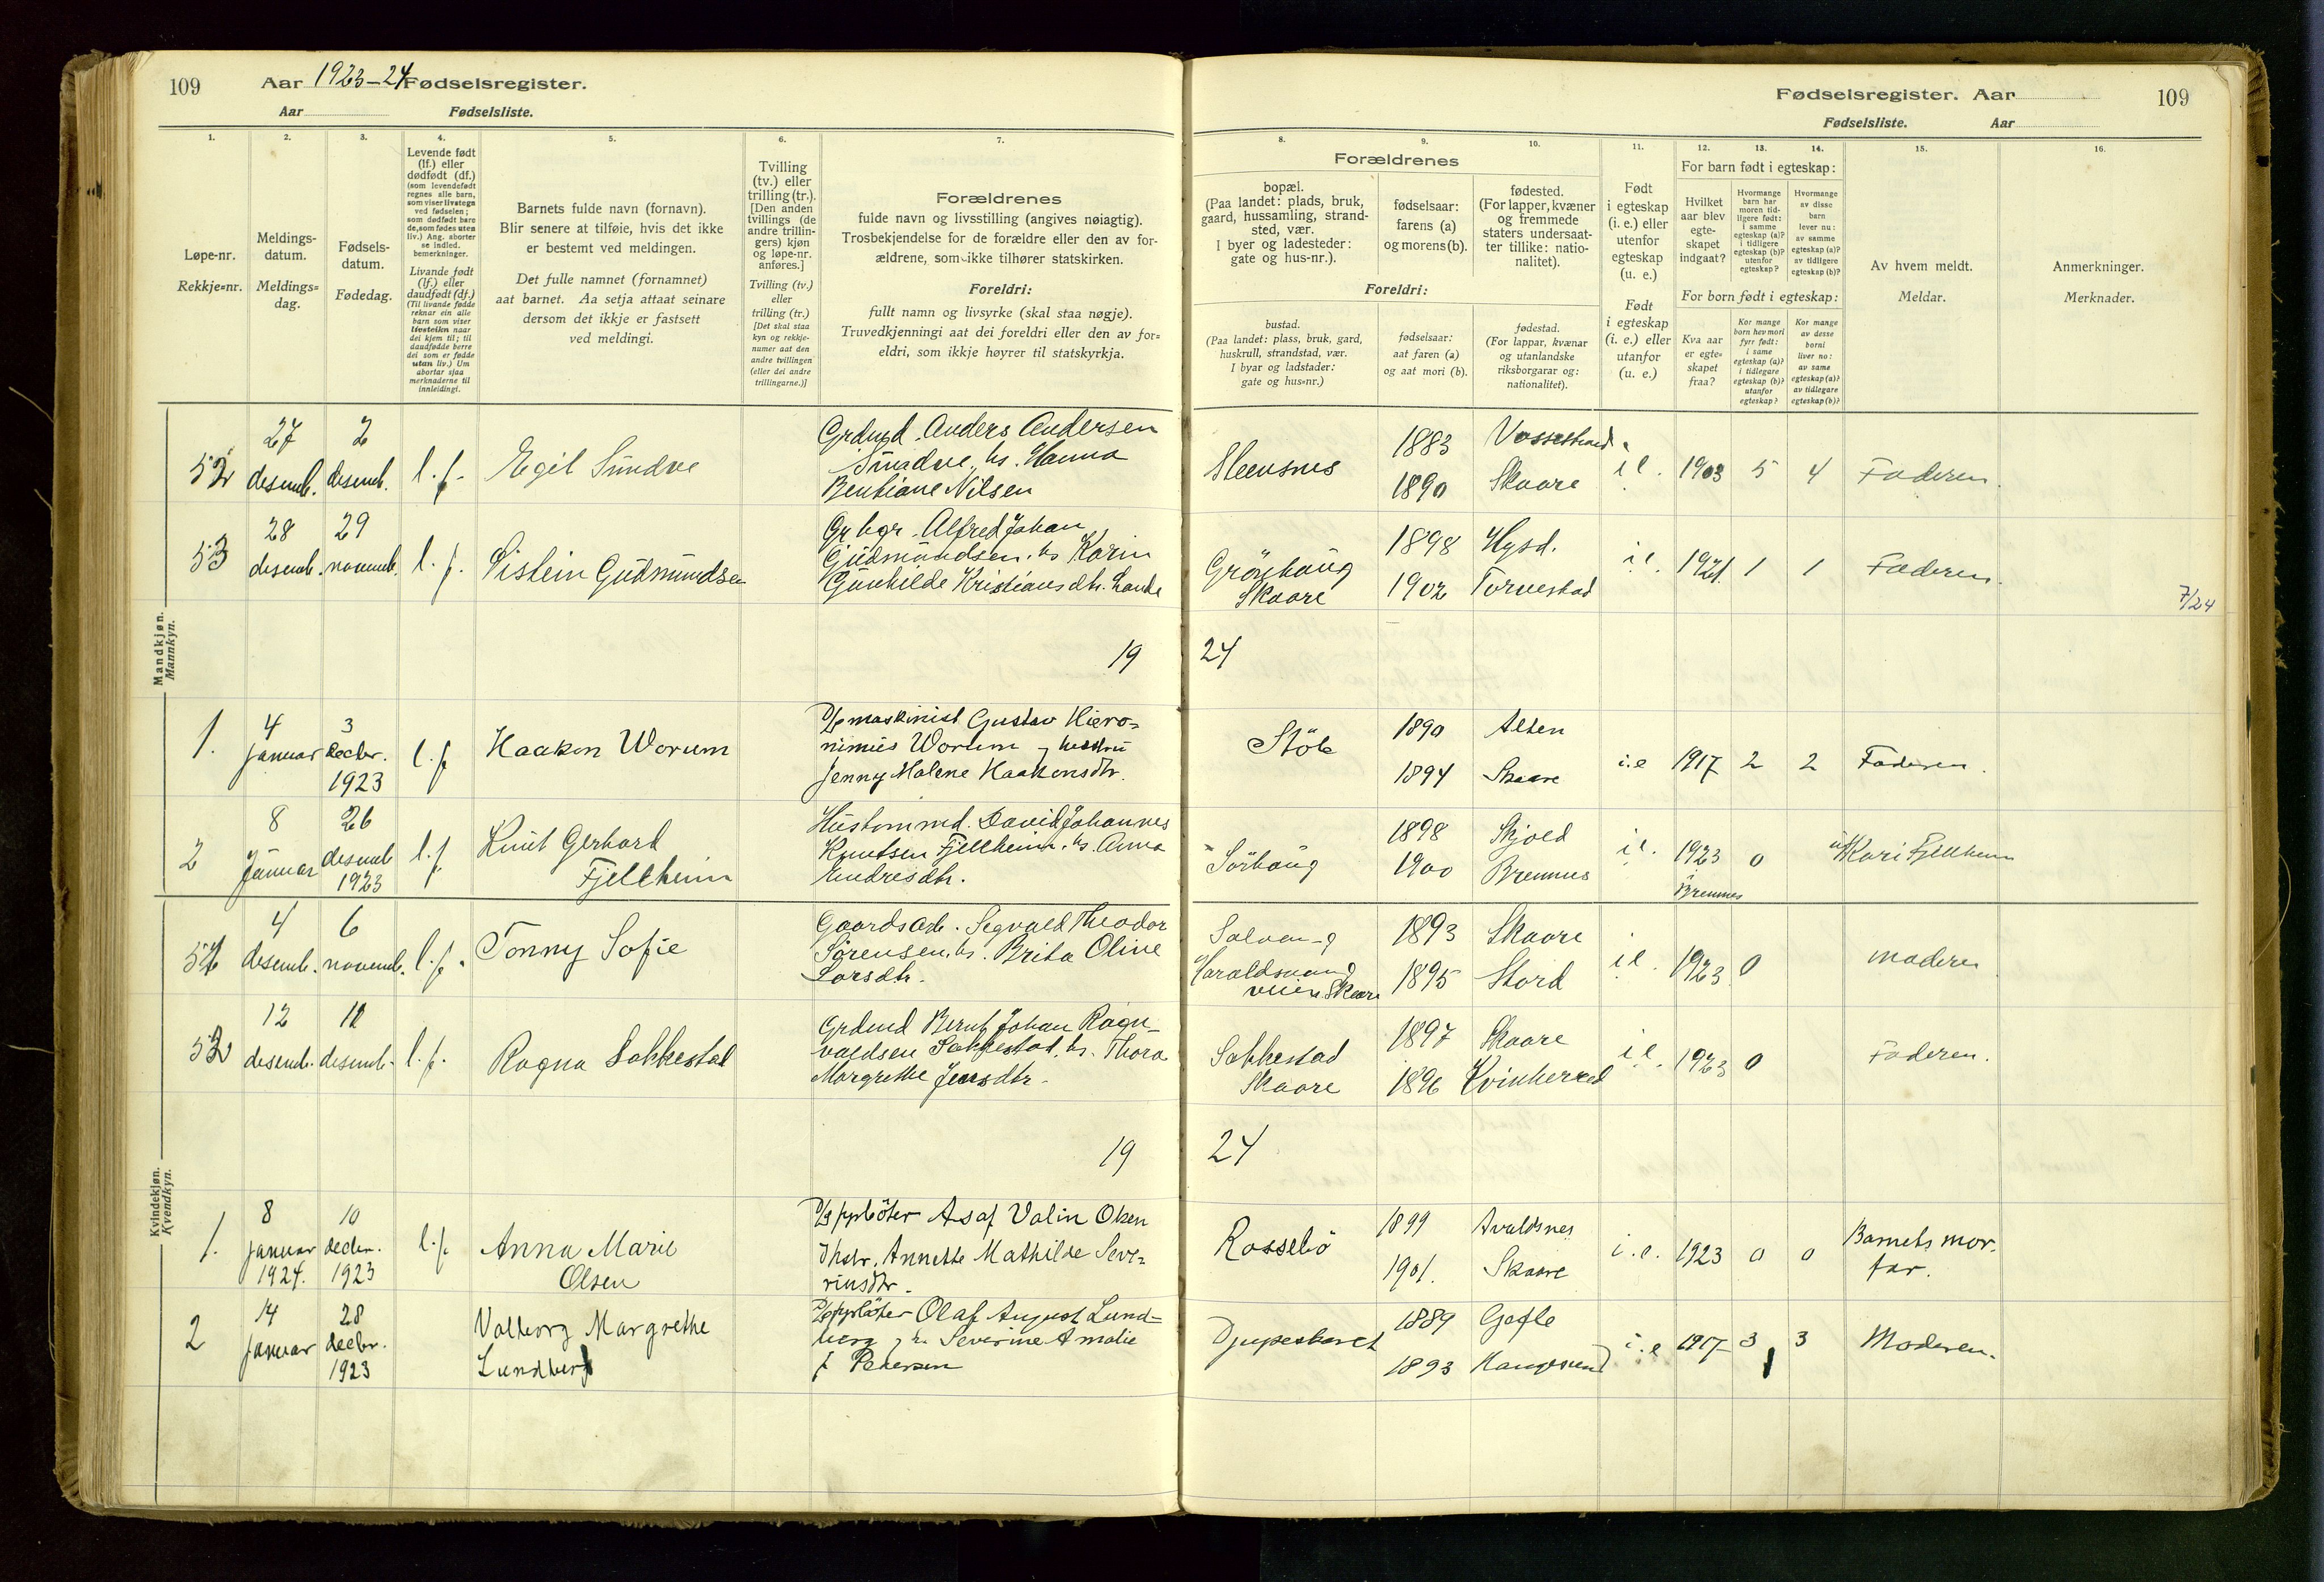 109 Aar 1923–24 Fødselsregister.
Aar Fødselsliste.
Fødselsregister. Aar 109
Fødselsliste. Aar
1.
Løpe-nr.
Rekkje-nr.
2.
Meldings-
datum.
Meldings-
dag.
3.
Fødsels-
datum.
Fødedag.
4.
Levende født
(lf.) eller
dødfødt (df.)
(som levendefødt
regnes alle barn,
som viser livstegn
ved fødselen;
som dødfødt bare
de, som fødes uten
liv.) Ang. aborter
se indled.
bemerkninger.
Livande født
(lf.) eller
daudfødt (df.)
(Til livande fødde
reknar ein alle
barn som viser
livsteikn naar
dei kjem til; til
daudfødde berre
dei som er fødde
utan liv.) Um
abortar sjaa
merknaderne til
innleidingi.
5.
Barnets fulde navn (fornavn).
Blir senere at tilføie, hvis det ikke
er bestemt ved meldingen.
Det fulle namnet (fornamnet)
aat barnet. Aa setja attaat seinare
dersom det ikkje er fastsett
ved meldingi.
6.
Tvilling
(tv.) eller
trilling (tr.).
[Den anden
tvillings (de
andre trillin-
gers) kjøn
og løpe-nr.
anføres.]
Tvilling (tv.)
eller
trilling (tr.)
[Det skal staa
kyn og rekkje-
numer aat den
andre tvillingen
(eller dei andre
trillingarne.)]
7.
Forældrenes
fulde navn og livsstilling (angives nøiagtig).
Trosbekjendelse for de forældre eller den av for-
ældrene, som ikke tilhører statskirken.
Foreldri:
fullt namn og livsyrke (skal staa nøgje).
Truvedkjenningi aat dei foreldri eller den av for-
eldri, som ikkje høyrer til statskyrkja.
8. 9. 10.
Forældrenes
bopæl.
(Paa landet: plads, bruk,
gaard, hussamling, strand-
sted, vær.
I byer og ladesteder:
gate og hus-nr.).
fødselsaar:
farens (a)
og morens (b).
fødested.
(For lapper, kvæner
og fremmede
staters undersaat-
ter tillike: natio-
nalitet).
Foreldri:
bustad.
(Paa landet: plass, bruk, gard,
huskrull, strandstad, vær.
I byar og ladstader:
gate og hus-nr.)
fødselsaar:
aat faren (a)
og aat mori (b).
fødestad.
(For lappar, kvænar
og utanlandske
riksborgarar og:
nationalitet).
11.
Født
i egteskap
(i. e.) eller
utenfor
egteskap
(u. e.)
Født
i egteskap
(i. e.) eller
utanfor
(u. e.)
12. 13. 14.
For barn født i egteskap:
Hvilket
aar blev
egte-
skapet
indgaat?
Hvormange
barn har
moren tid-
ligere født:
i samme
egteskap (a)?
i tidligere
egteskap (b)?
utenfor
egteskap?
Hvormange
av disse
barn
lever nu:
av samme
egteskap (a)?
av tidligere
egteskap (b)?
For born født i egteskap:
Kva aar
er egte-
skapet
fraa?
Kor mange
born hev mori
fyrr født:
i same
egteskap (a)?
i tidlegare
egteskap (b)?
utanfor
egteskap?
Kor mange
av desse
borni
liver no:
av same
egteskap (a)?
av tidlegare
egteskap (b)?
15.
Av hvem meldt.
Meldar.
16.
Anmerkninger.
Merknader.
Mandkjøn.
Mannkyn.
52 27 desemb. 2 desemb. l. f. Egil Sundve
Anders Andersen
Sundve, hs. Hanna
Bentiane Nilsen
1883 1890 Skaare i e. 1903 5 4 Faderen.
53 28 desemb. 29 novemb. l. f. Sistein Gudmundsen
Alfred Johan
Gudmundsen. hs Karin
Gunhilde Kristiansdtr. Lande
Grönhaug
Skaare
1898 1902 Torvestad i e. 1921. 1 1 Faderen.
7/24
19 24
1. 4 januar 3 decbr. 1923 l. f Haakon Worum
maskinist Gustav Hiero-
nimus Worum og hustru
Jenny Malene Haakonsdtr.
Stöle 1890 Alten 1894 Skaare i.e 1917 2 2 Faderen.
2 8 Januar 26 desemb 1923 l. f. Knut Gerhard
Fjellheim
David Johannes
Knutsen Fjellheim. hs. Anna
Andresdtr.
Sörhaug 1898 Skjold 1900 Bremnes i e. 1923 Bremnes 0 Kari Fjellheim
Kvindekjøn.
Kvendkyn.
51 4 desemb. 6 novemb. l. f. Tonny Sofie
Gaardsarb. Segvald Theodor
Sörensen, hs. Brita Oline
Larsdtr.
Haraldsvang
veien Skaare
1893 Skaare 1895 Stord i e. 1923 0 moderen
52 12 desemb. 11 desemb. l. f. Ragna Sakkestad
Bernt Johan Ragn-
valdsen Sakkestad, hs. Thora
Margrethe Jensdtr.
Sakkestad
Skaare
1897 Skaare 1896 Kvinherred i e. 1923 0 Faderen.
19 24
1. 8 januar 1924. 10 decbr. 1923 l. f. Anna Marie
Olsen
Asaf Valin Olsen
Annette Mathilde Seve-
rinsdtr.
Rossebö 1899 Avaldsnes 1901. Skaare i. e. 1923 0 0 Barnets mor-
far.
2 14 januar 28 decbr. 1923 Valborg Margrethe
Lundberg
Olaf August Lund-
berg og h. Severine Amalie
f Petersen
Djupeskaret 1889 Gefle 1893 Haugesund i. e 1917 3 3 Moderen.